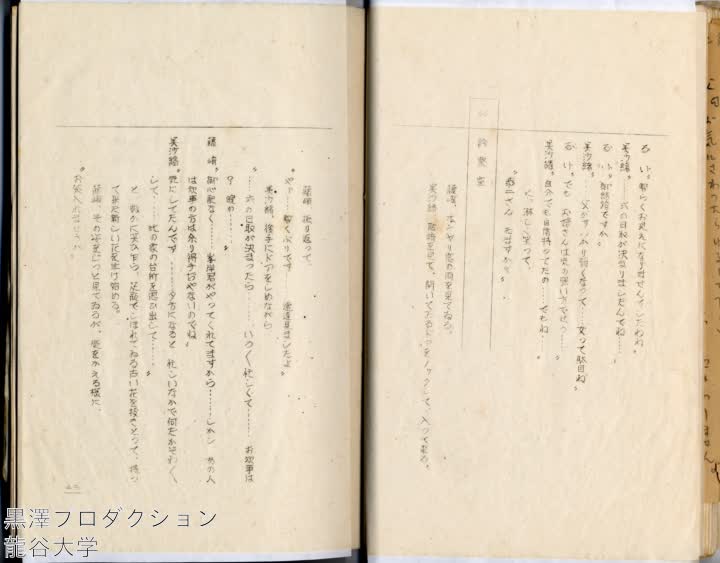 るい。暫らくお見えになりませんでしたわね。
美沙緒。式の日取が決まりましたんでね……
るい。御慾談ですか。
美沙緒。父がすっかり弱くなって……女って駄目ね。
るい。でも お嬢さんは気の強い方でせう……
美沙緒。自分でも自信持ってたの……でもね……
と、淋しく笑って、
恭二さん ゐますか？
診察室
藤崎、ボンヤリ窓の雨を見てゐる。
美沙緒、藤崎を見て、開いてゐるドアをノックして、入って来る。
藤崎、振り返って、
や…… 暫くぶりです
美沙緒、後手にドアをしめながら
……式の日取が決まったら……いろく忙しくて…… お炊事は
？ 晩の……
藤崎。御心配なく…… 峯岸君がやってくれてますから……しかし あの人
は炊事の方は余り得手ぢやないのでね
美沙緒。気にしてたんです……夕方になると 忙しいなかで何だかそわくして……
此の家の台所を思ひ出して……
と 軽かに笑ひ乍ら、花瓶でしほれてゐる古い花を抜きとって、持っ
て来た新しい花を生け始める。
藤崎、その花をじっと見てゐるが、話をかえる様に、
黒澤プロダクション
龍谷大学